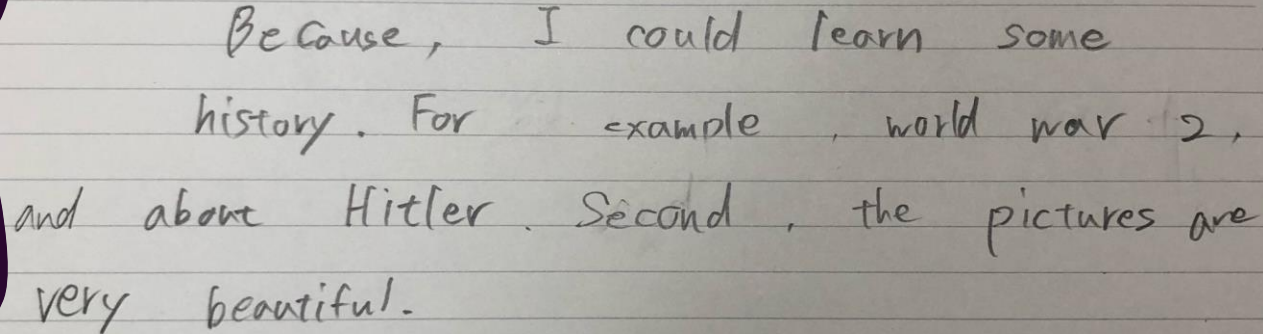 Because, I could learn some
history. For example, world war 2,
and about Hitler. Second, the pictures are
very beautiful.